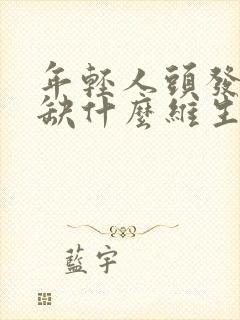 年輕人頭發
缺什麼維生
藍宇